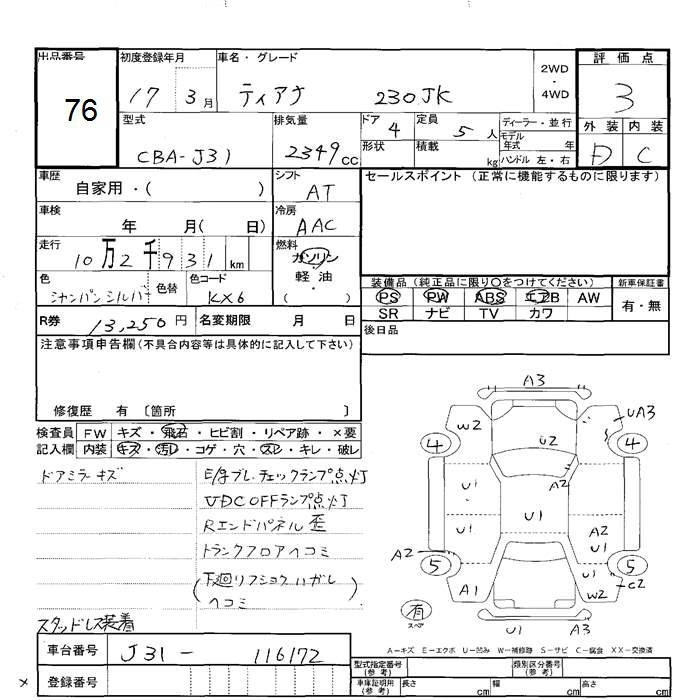 出品番号 76
初度登録年月 17 3月
車名・グレード ティアナ 230JK
2WD・4WD
評価点 3
外装 D 内装 C
型式 CBA-J31
排気量 2349cc
ドア 4 定員 5人
形状 積載 kg
ディーラー・並行
モデル年式 年
ハンドル 左・右
車歴 自家用・( )
シフト AT
セールスポイント (正常に機能するものに限ります)
車検 年 月( 日)
冷房 AAC
走行 10万2千931km
燃料 ガソリン・軽油・( )
色 シャンパンシルバー 色替 色コード KX6
装備品(純正品に限り○をつけてください) 新車保証書
PS PW ABS エアB AW 有・無
SR ナビ TV カワ
R券 13,250円 名変期限 月 日
後日品
注意事項申告欄(不具合内容等は具体的に記入して下さい)
修復歴 有 〔箇所 〕
検査員 FW キズ・飛石・ヒビ割・リペア跡・×要
記入欄 内装 キズ・汚レ・コゲ・穴・スレ・キレ・破レ
ドアミラーキズ
E/gブレ.チェックランプ点灯
VDC OFFランプ点灯
Rエンドパネル歪
トランクフロアヘコミ
(下廻リフショクハガレ
ヘコミ)
スタッドレス装着
A3
W2 UA3
4 U2 4
A2
U1 U1
U1 A2 U1
A2
5 5
A1 W2 C2
有 スペア
U1 A3
A-キズ E-エクボ U-凹み W-補修跡 S-サビ C-腐食 XX-交換済
車台番号 J31-116172
登録番号
型式指定番号(参考) 類別区分番号(参考)
車庫証明用(参考) 長さ cm 幅 cm 高さ cm